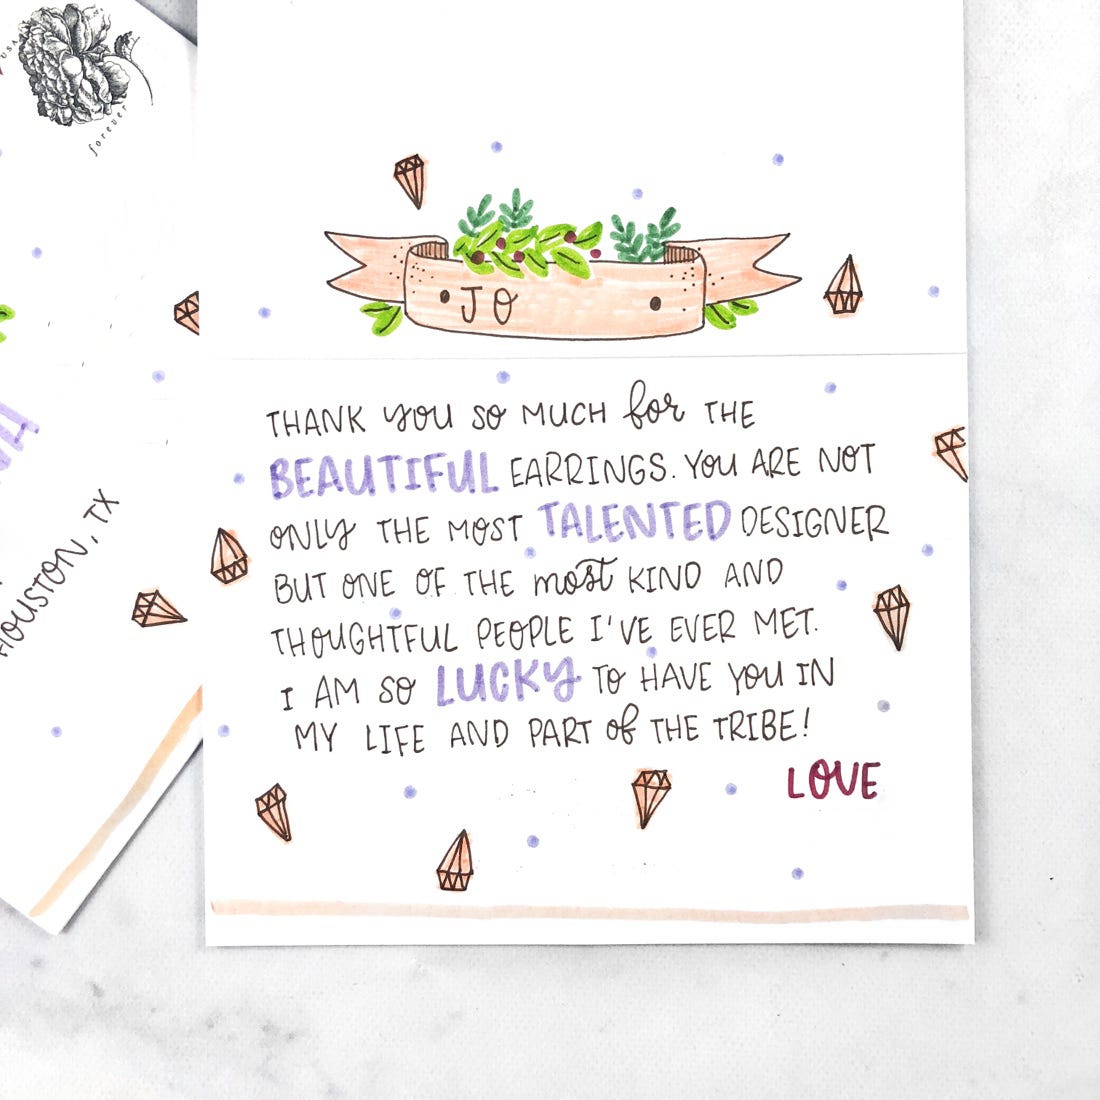 USA
forever
HOUSTON, TX
JO
THANK you SO MUCH for THE
BEAUTIFUL EARRINGS. YOU ARE NOT
ONLY THE MOST TALENTED DESIGNER
BUT ONE OF THE most KIND AND
THOUGHTFUL PEOPLE I'VE EVER MET.
I AM SO LUCKY TO HAVE YOU IN
MY LIFE AND PART of THE TRIBE!
LOVE